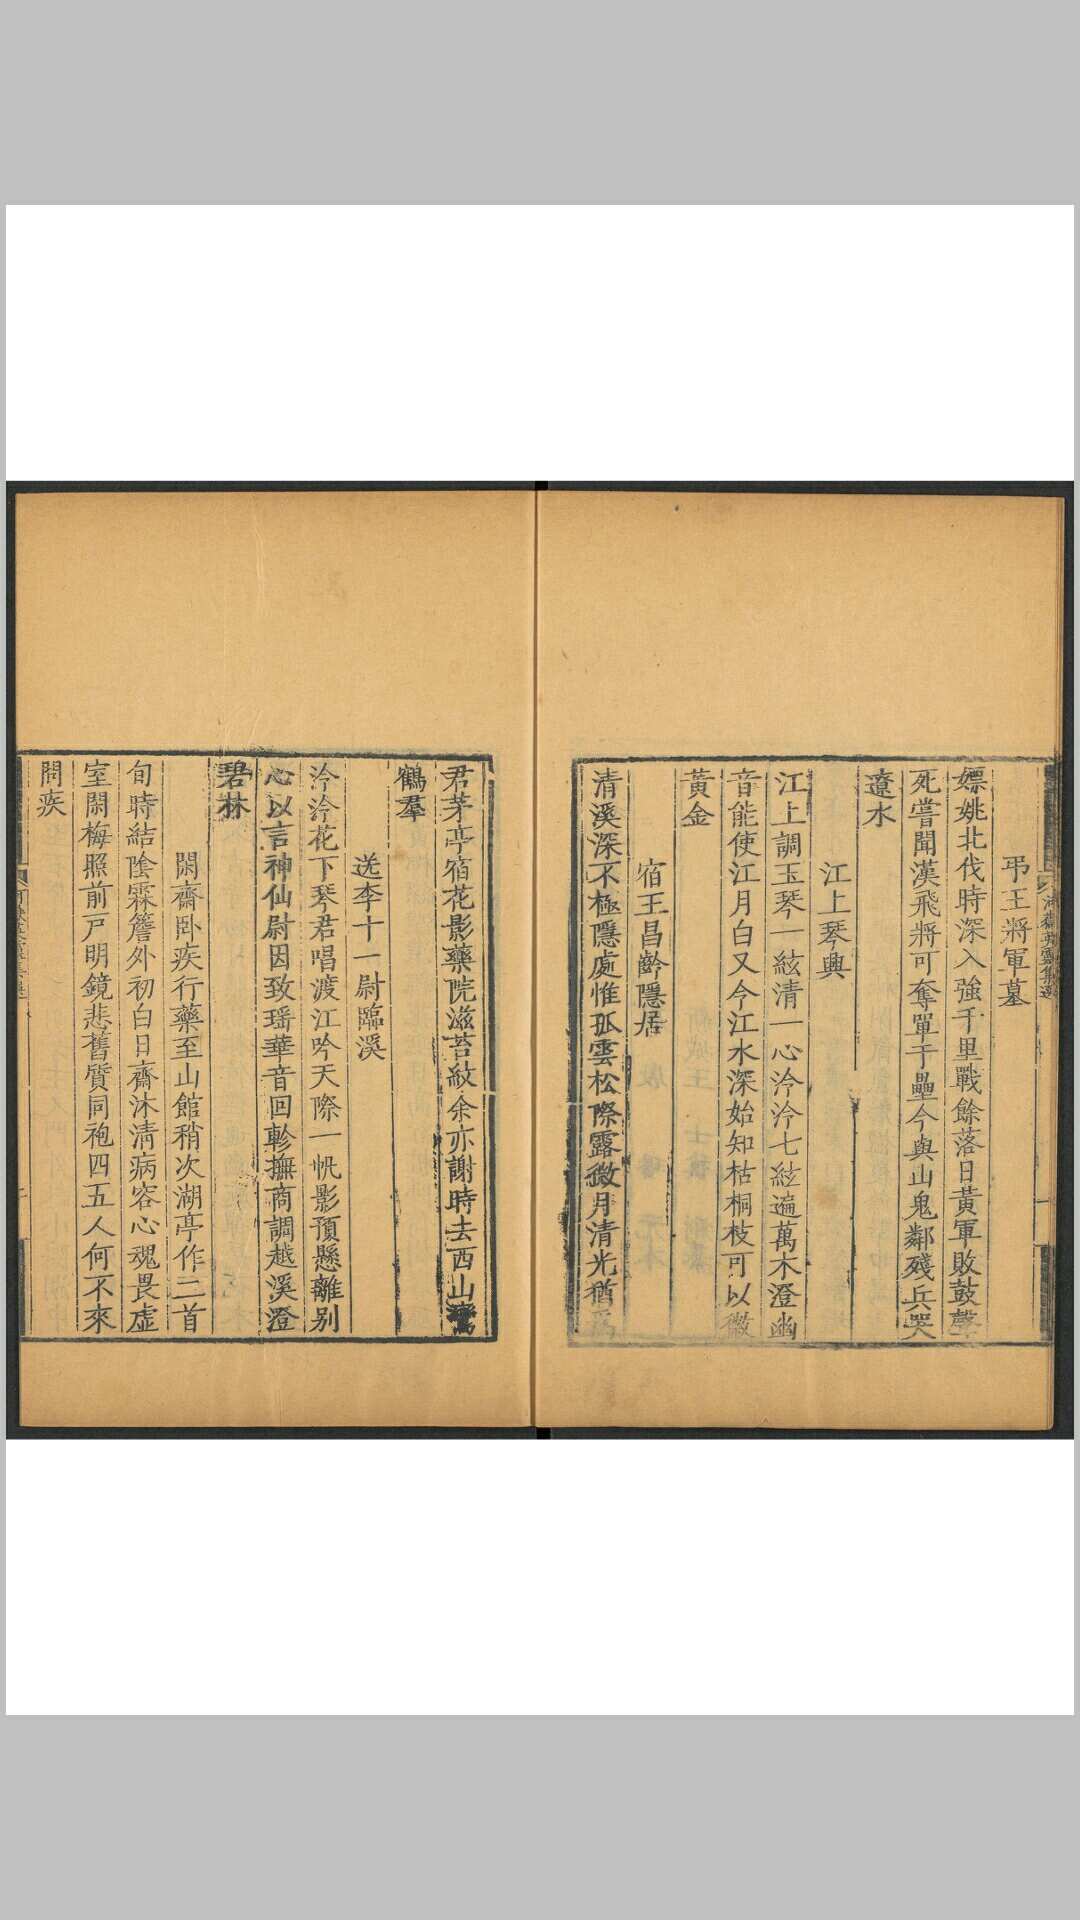 河嶽英靈集選
弔王將軍墓
嫖姚北伐時深入強千里戰餘落日黃軍敗鼓聲
死嘗聞漢飛將可奪單于壘今與山鬼鄰殘兵哭
遼水
江上琴興
江上調玉琴一絃清一心泠泠七絃遍萬木澄幽
音能使江月白又令江水深始知枯桐枝可以徽
黃金
宿王昌齡隱居
清溪深不極隱處惟孤雲松際露微月清光猶爲
君茅亭宿花影藥院滋苔紋余亦謝時去西山鸞
鶴羣
送李十一尉臨溪
泠泠花下琴君唱渡江吟天際一帆影預懸離别
心以言神仙尉因致瑶華音回軫撫商調越溪澄
碧林
閑齋卧疾行藥至山館稍次湖亭作二首
旬時結陰霖簷外初白日齋沐清病容心魂畏虛
室閑梅照前戶明鏡悲舊質同袍四五人何不來
問疾